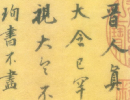 晉人真
大令已罕
視大令不
珣書不盡